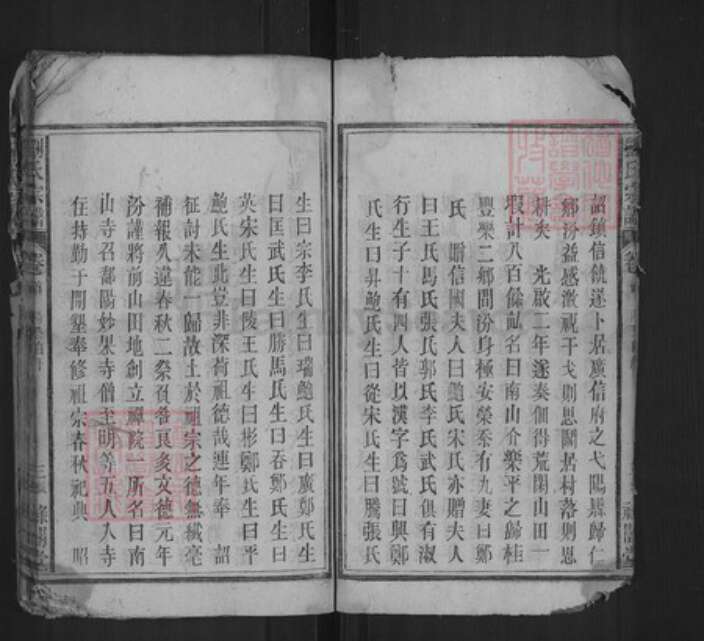 詔鎮信饒遂卜居廣信府之弋陽縣歸仁
鄉汾益感激視干戈則思鬬居村落則思
耕矣　光啟二年遂奏佃得荒閑山田一
叚計八百餘畝名曰南山介樂平之歸桂
豐樂二鄉間汾身極安榮至有九妻曰鄭
氏　贈信國夫人曰鮑氏宋氏亦贈夫人
曰王氏馬氏張氏郭氏李氏武氏俱有淑
行生子十有四人皆以漢字為號曰興鄭
氏生曰昇鮑氏生曰從宋氏生曰騰張氏
生曰宗李氏生曰瑞鮑氏生曰廣鄭氏生
曰匡武氏生曰勝馬氏生曰吞鄭氏生曰
英宋氏生曰陵王氏生曰彬鄭氏生曰平
鮑氏生此豈非深荷祖德哉連年奉　詔
征討未能一歸故土於祖宗之德無纎毫
補報久違春秋二祭負咎良多文德元年
汾謹將前山田地創立禪院一所名曰南
山寺召鄱陽妙果寺僧至明等五人入寺
住持勤于開墾奉修祖宗春秋祀典　昭
氏宗譜
卷首